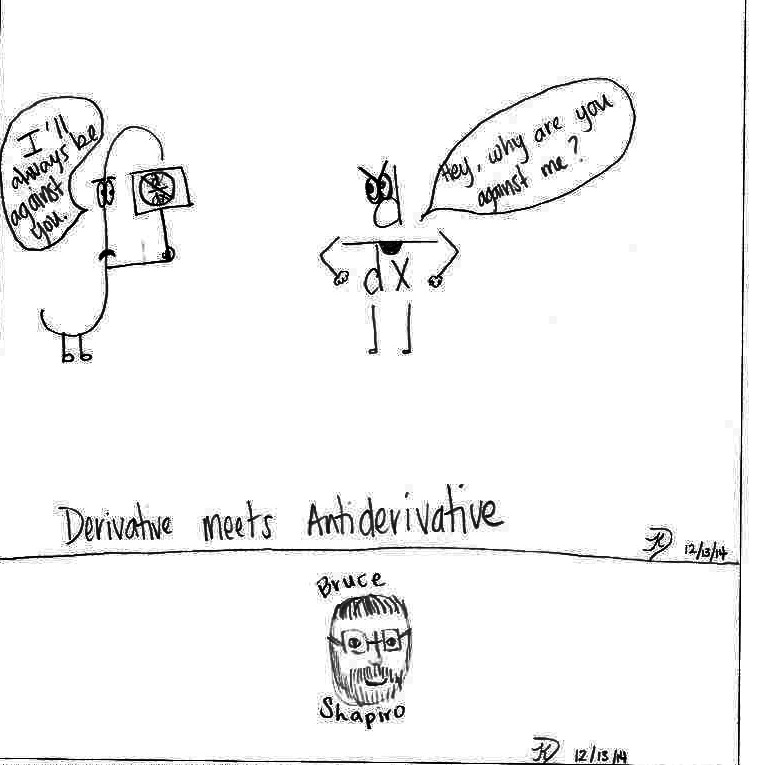 I'll
always be
against
you.
Hey, why are you
against me?
d
dx
Derivative meets Antiderivative
12/13/14
Bruce
Shapiro
12/13/14